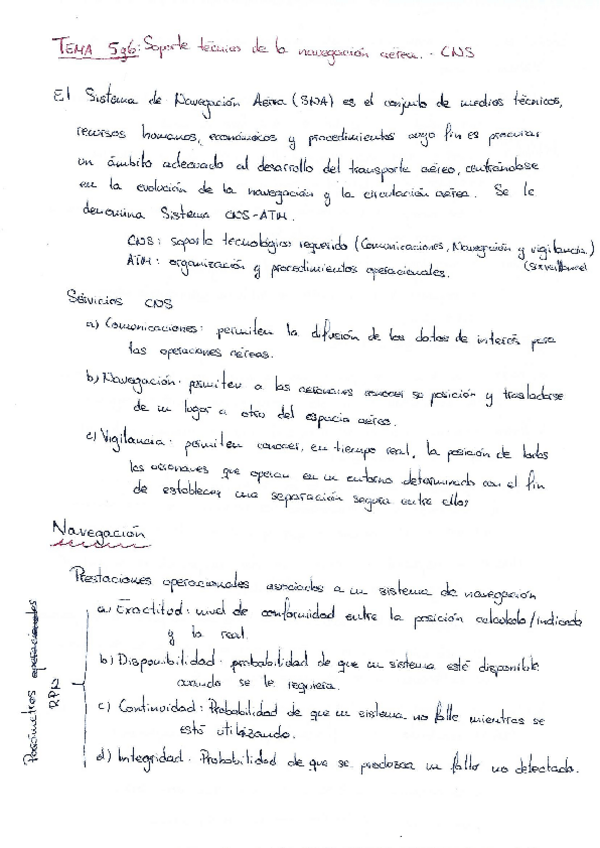 TEMA 5y6: Soporte técnico de la navegación aérea. - CNS
El Sistema de Navegación Aérea (SNA) es el conjunto de medios técnicos,
recursos humanos, económicos y procedimientos cuyo fin es procurar
un ámbito adecuado al desarrollo del transporte aéreo, centrándose
en la evolución de la navegación y la circulación aérea. Se le
denomina Sistema CNS-ATM.
CNS: soporte tecnológico requerido (Comunicaciones, Navegación y vigilancia)
(Surveillance)
ATM: organización y procedimientos operacionales.
Servicios CNS
a) Comunicaciones: permiten la difusión de los datos de interés para
las operaciones aéreas.
b) Navegación: permiten a las aeronaves conocer su posición y trasladarse
de un lugar a otro del espacio aéreo.
c) Vigilancia: permiten conocer, en tiempo real, la posición de todas
las aeronaves que operan en un entorno determinado con el fin
de establecer una separación segura entre ellos
Navegación
Prestaciones operacionales asociadas a un sistema de navegación
Parámetros operacionales
RPN
a) Exactitud: nivel de conformidad entre la posición calculada/indicada
y la real.
b) Disponibilidad: probabilidad de que un sistema esté disponible
cuando se le requiera.
c) Continuidad: Probabilidad de que un sistema no falle mientras se
está utilizando.
d) Integridad: Probabilidad de que se produzca un fallo no detectado.